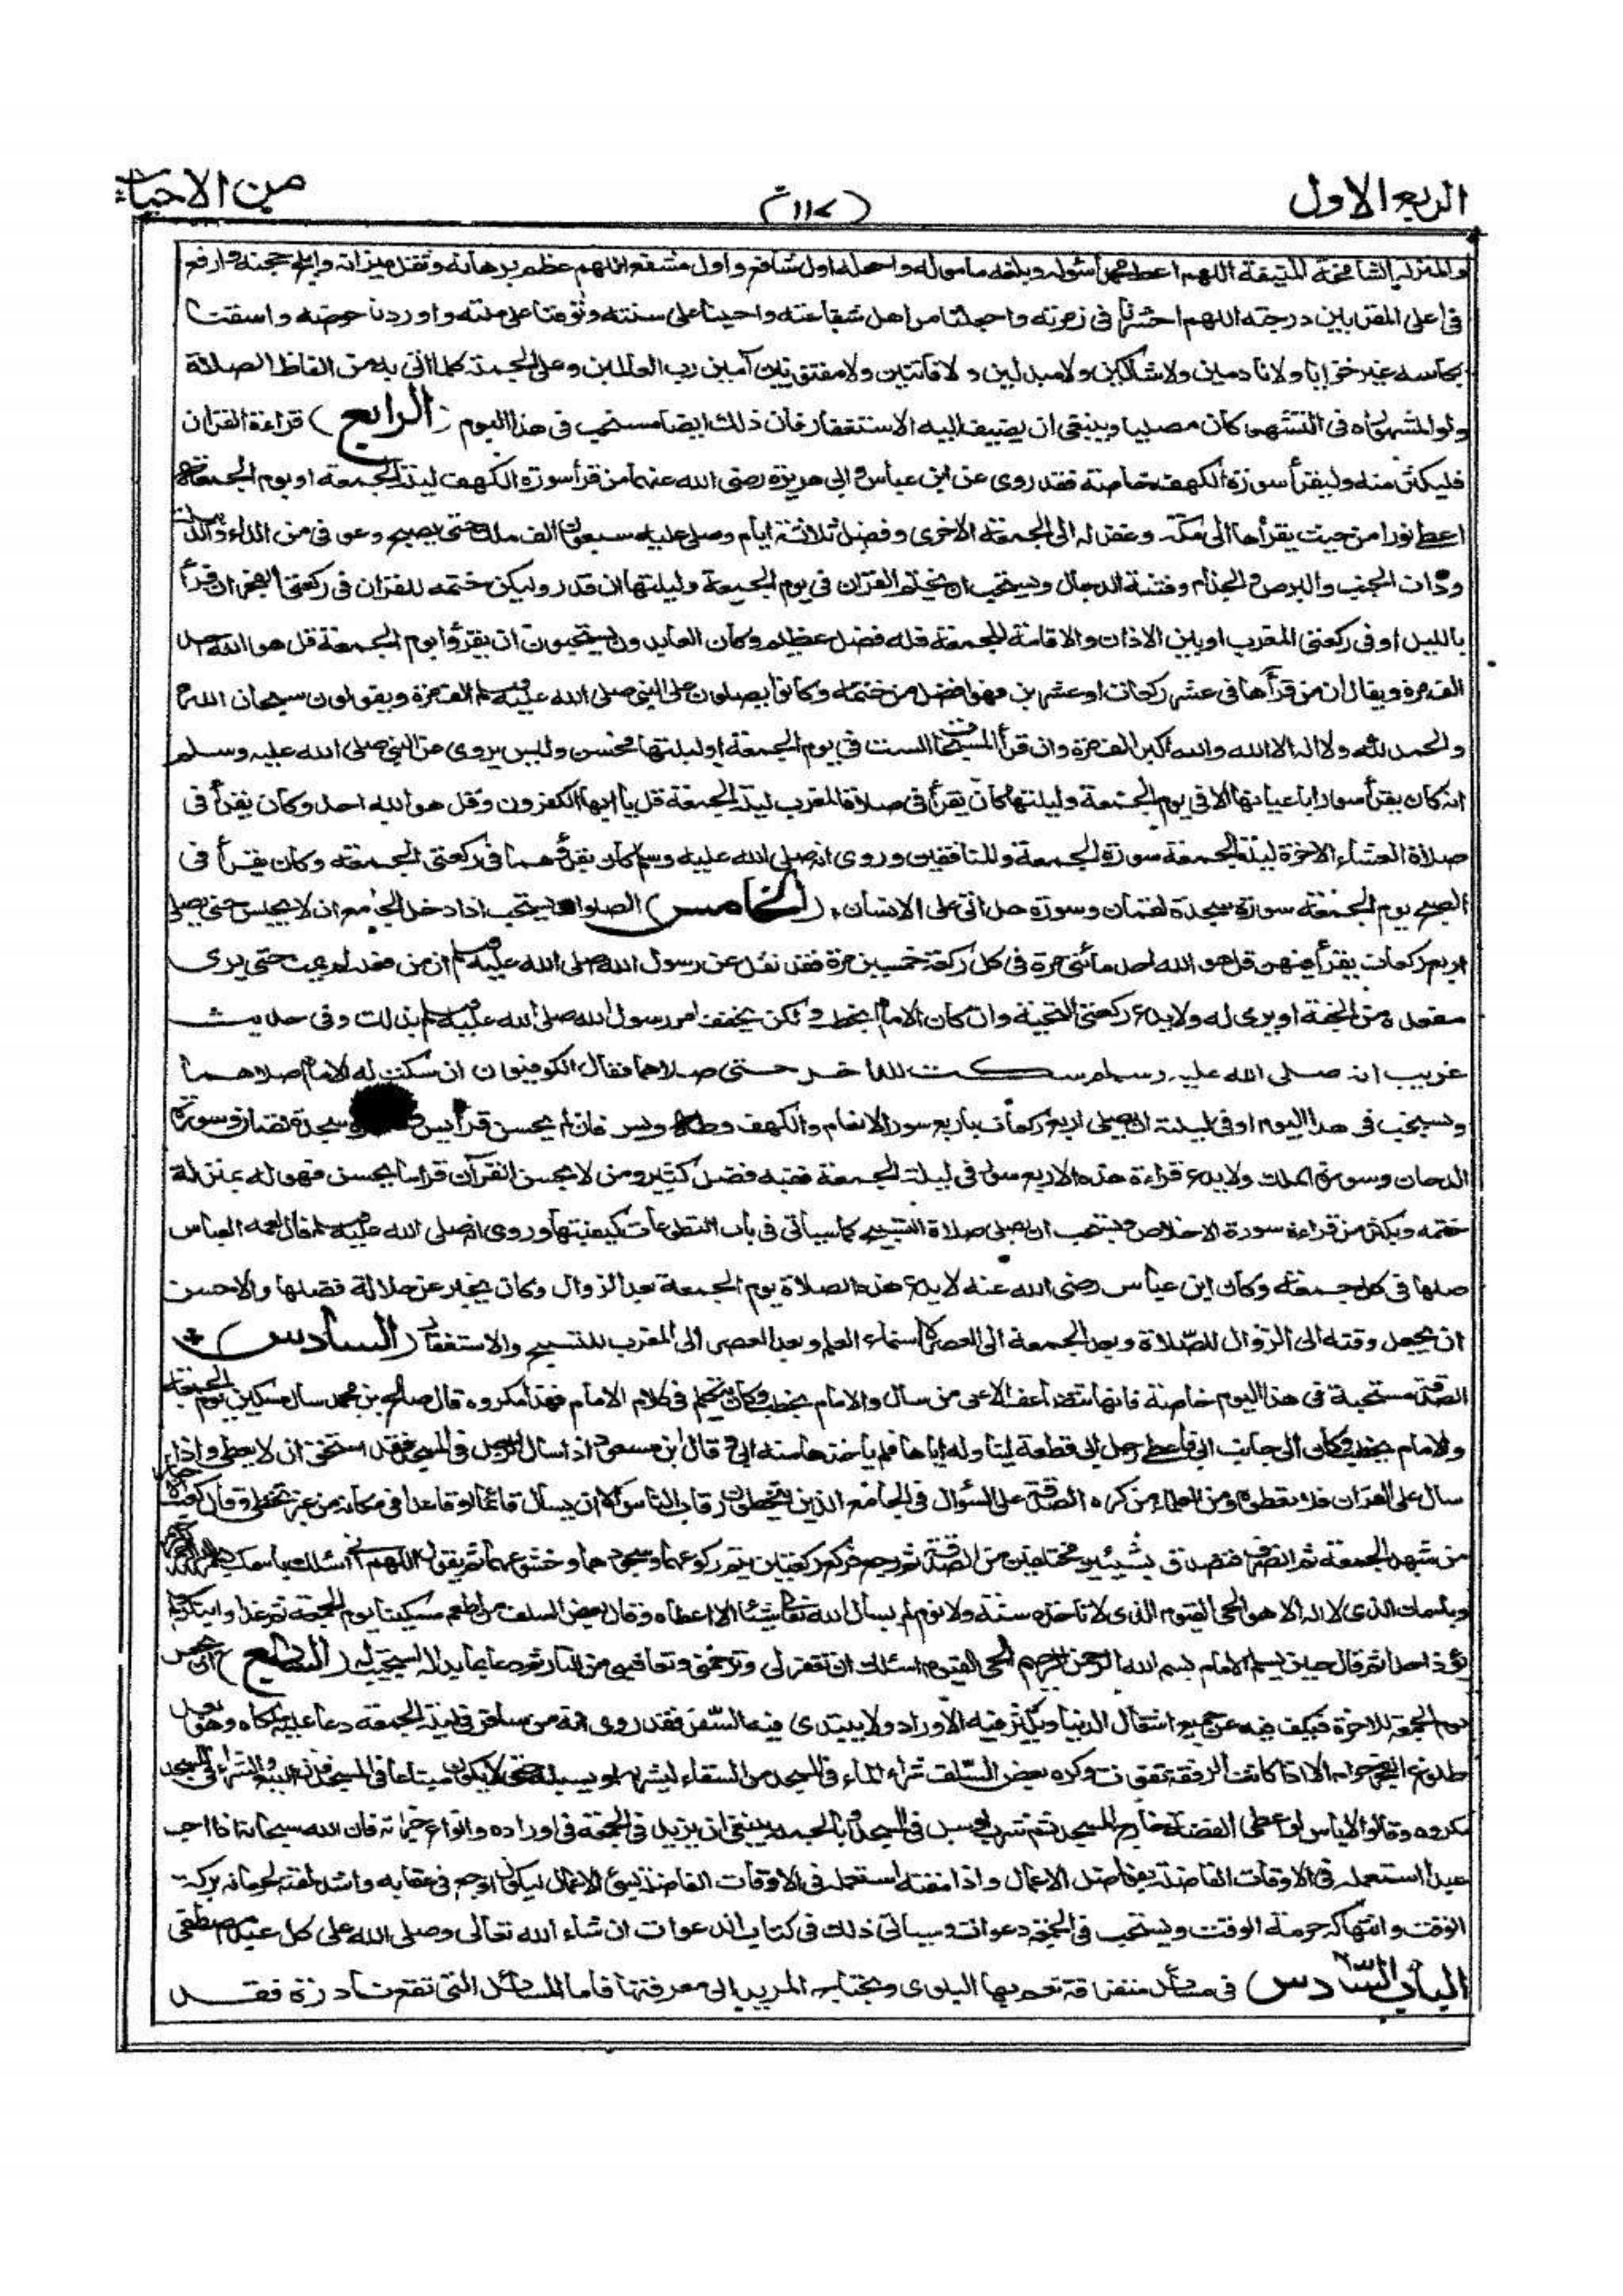 الربع الاول
(١١٧)
من الاحياء
والمنزلة الشامخة المنيفة اللهم اعط محمدا سؤله وبلغه مأموله واجعله اول شافع واول مشفع اللهم عظم برهانه وثقل ميزانه وابلج حجته وارفع
فى اعلى المقربين درجته اللهم احشرنا فى زمرته واجعلنا من اهل شفاعته واحينا على سنته وتوفنا على ملته واوردنا حوضه واسقنا
بكأسه غير خزايا ولا نادمين ولا شاكين ولا مبدلين ولا فاتنين ولا مفتونين آمين رب العالمين وعلى الجملة كلما اتى به من الفاظ الصلاة
ولو المشهورة فى التشهد كان مصليا وينبغى ان يضيف اليه الاستغفار فان ذلك ايضا مستحب فى هذا اليوم (الرابع) قراءة القران
فليكثر منه وليقرأ سورة الكهف خاصة فقد روى عن ابن عباس وابى هريرة رضى الله عنهما من قرأ سورة الكهف ليلة الجمعة او يوم الجمعة
اعطى نورا من حيث يقرأها الى مكة وغفر له الى الجمعة الاخرى وفضل ثلاثة ايام وصلى عليه سبعون الف ملك حتى يصبح وعوفى من الداء والدبيلة
وذات الجنب والبرص والجذام وفتنة الدجال ويستحب ان يختم القرآن فى يوم الجمعة وليلتها ان قدر وليكن ختمه للقران فى ركعتى الفجر ان قرأ
بالليل او فى ركعتى المغرب او بين الاذان والاقامة للجمعة فله فضل عظيم وكان العابدون يستحبون ان يقرؤا يوم الجمعة قل هو الله احد
الف مرة ويقال ان من قرأها فى عشر ركعات او عشرين فهو افضل من ختمة وكانوا يصلون على النبى صلى الله عليه وسلم الف مرة ويقولون سبحان الله
والحمد لله ولا اله الا الله والله اكبر الف مرة وان قرأ المسبحات الست فى يوم الجمعة او ليلتها فحسن وليس يروى عن النبى صلى الله عليه وسلم
انه كان يقرأ سورا باعيانها الا فى يوم الجمعة وليلتها كان يقرأ فى صلاة المغرب ليلة الجمعة قل يا ايها الكفرون وقل هو الله احد وكان يقرأ فى
صلاة العشاء الاخرة ليلة الجمعة سورة الجمعة والمنافقين وروى انه صلى الله عليه وسلم كان يقرؤهما فى ركعتى الجمعة وكان يقرأ فى
الصبح يوم الجمعة سورة سجدة لقمان وسورة هل اتى على الانسان، (الخامس) الصلوات يستحب اذا دخل الجامع ان لا يجلس حتى يصلى
اربع ركعات يقرأ فيهن قل هو الله احد مائتى مرة فى كل ركعة خمسين مرة فقد نقل عن رسول الله صلى الله عليه وسلم ان من فعله لم يمت حتى يرى
مقعده من الجنة او يرى له ولا يدع ركعتى التحية وان كان الامام يخطب ولكن يخفف امر رسول الله صلى الله عليه وسلم بذلك وفى حديث
غريب انه صلى الله عليه وسلم سكت للداخر حتى صلاهما فقال الكوفيون ان سكت له الامام صلاهما
ويستحب فى هذا اليوم او فى ليلته ان يصلى اربع ركعات باربع سور الانعام والكهف وطه ويس فان لم يحسن قرأ يس وسجدة لقمان وسورة
الدخان وسورة الملك ولا يدع قراءة هذه الاربع سور فى ليلة الجمعة ففيه فضل كثير ومن لا يحسن القرآن قرأ ما يحسن فهو له بمنزلة
ختمه ويكثر من قراءة سورة الاخلاص ويستحب ان يصلى صلاة التسبيح كما سيأتى فى باب التطوعات كيفيتها وروى انه صلى الله عليه وسلم قال لعمه العباس
صلها فى كل جمعة وكان ابن عباس رضى الله عنه لا يدع هذه الصلاة يوم الجمعة بعد الزوال وكان يخبر عن جلالة فضلها والاحسن
ان يجعل وقته الى الزوال للصلاة وبعد الجمعة الى العصر لاستماع العلم وبعد العصر الى المغرب للتسبيح والاستغفار (السادس)
الصدقة مستحبة فى هذا اليوم خاصة فانها تتضاعف الا على من سأل والامام يخطب وكان يتكلم فى كلام الامام فهذا مكروه قال صالح بن محمد سأل مسكين يوم الجمعة
والامام يخطب وكان الى جانب ابى فاعطى رجل ابى قطعة ليناوله اياها فلم يأخذها منه ابى وقال ابن مسعود اذا سأل الرجل فى المسجد فقد استحق ان لا يعطى واذا
سأل على القران فلا تعطوه ومن العلماء من كره الصدقة على السؤال فى الجامع الذين يتخطون رقاب الناس الا ان يسأل قائما او قاعدا فى مكانه من غير تخط وقال كعب الاحبار
من شهد الجمعة ثم انصرف فتصدق بشيئين مختلفين من الصدقة ثم رجع فركع ركعتين يتم ركوعهما وسجودهما وخشوعهما ثم يقول اللهم انى اسئلك باسمك بسم الله الرحمن الرحيم
وباسمك الذى لا اله الا هو الحى القيوم الذى لا تاخذه سنة ولا نوم لم يسأل الله تعالى شيئا الا اعطاه وقال بعض السلف من اطعم مسكينا يوم الجمعة ثم غدا وابتكر ولم
يؤذ احدا ثم قال حين يسلم الامام بسم الله الرحمن الرحيم الحى القيوم اسئلك ان تغفر لى وترحمنى وتعافينى من النار ثم دعا بما بدا له استجيب له (السابع) ان يجعل
يوم الجمعة للاخرة فيكف فيه عن جميع اشغال الدنيا ويكثر فيه الاوراد ولا يبتدى فيه السفر فقد روى انه من سافر فى ليلة الجمعة دعا عليه ملكاه وهو بعد
طلوع الفجر حرام الا اذا كانت الرفقة تفوت وكره بعض السلف شراء الماء فى المسجد من السقاء ليشربه او يسبله حتى لا يكون مبتاعا فى المسجد فان البيع والشراء فى المسجد
مكروه وقالوا لا باس لو اعطى القضة خارج المسجد ثم شرب او سبل فى المسجد وبالجملة ينبغى ان يزيد فى الجمعة فى اوراده وانواع خيراته فان الله سبحانه اذا احب
عبدا استعمله فى الاوقات الفاضلة بفواضل الاعمال واذا مقته استعمله فى الاوقات الفاضلة بسئ الاعمال ليكون اوجع فى عقابه واشد لمقته لحرمانه بركة
الوقت وانتهاكه حرمة الوقت ويستحب فى الجمعة دعوات وسيأتى ذلك فى كتاب الدعوات ان شاء الله تعالى وصلى الله على كل عبد مصطفى
الباب السادس فى مسائل متفرقة تعم بها البلوى ويحتاج المريد الى معرفتها فاما المسائل التى تقع نادرة فقد